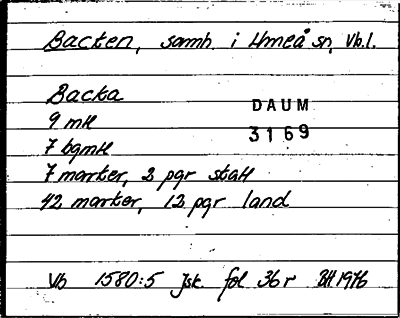 Backen, samh. i Umeå sn, Vb.l.
Backa
DAUM
9 mtl
3169
7 bgmtl
7 marker, 2 pgr skatt
42 marker, 12 pgr land
Vb 1580:5 Jsk. fol 36r BH 1976